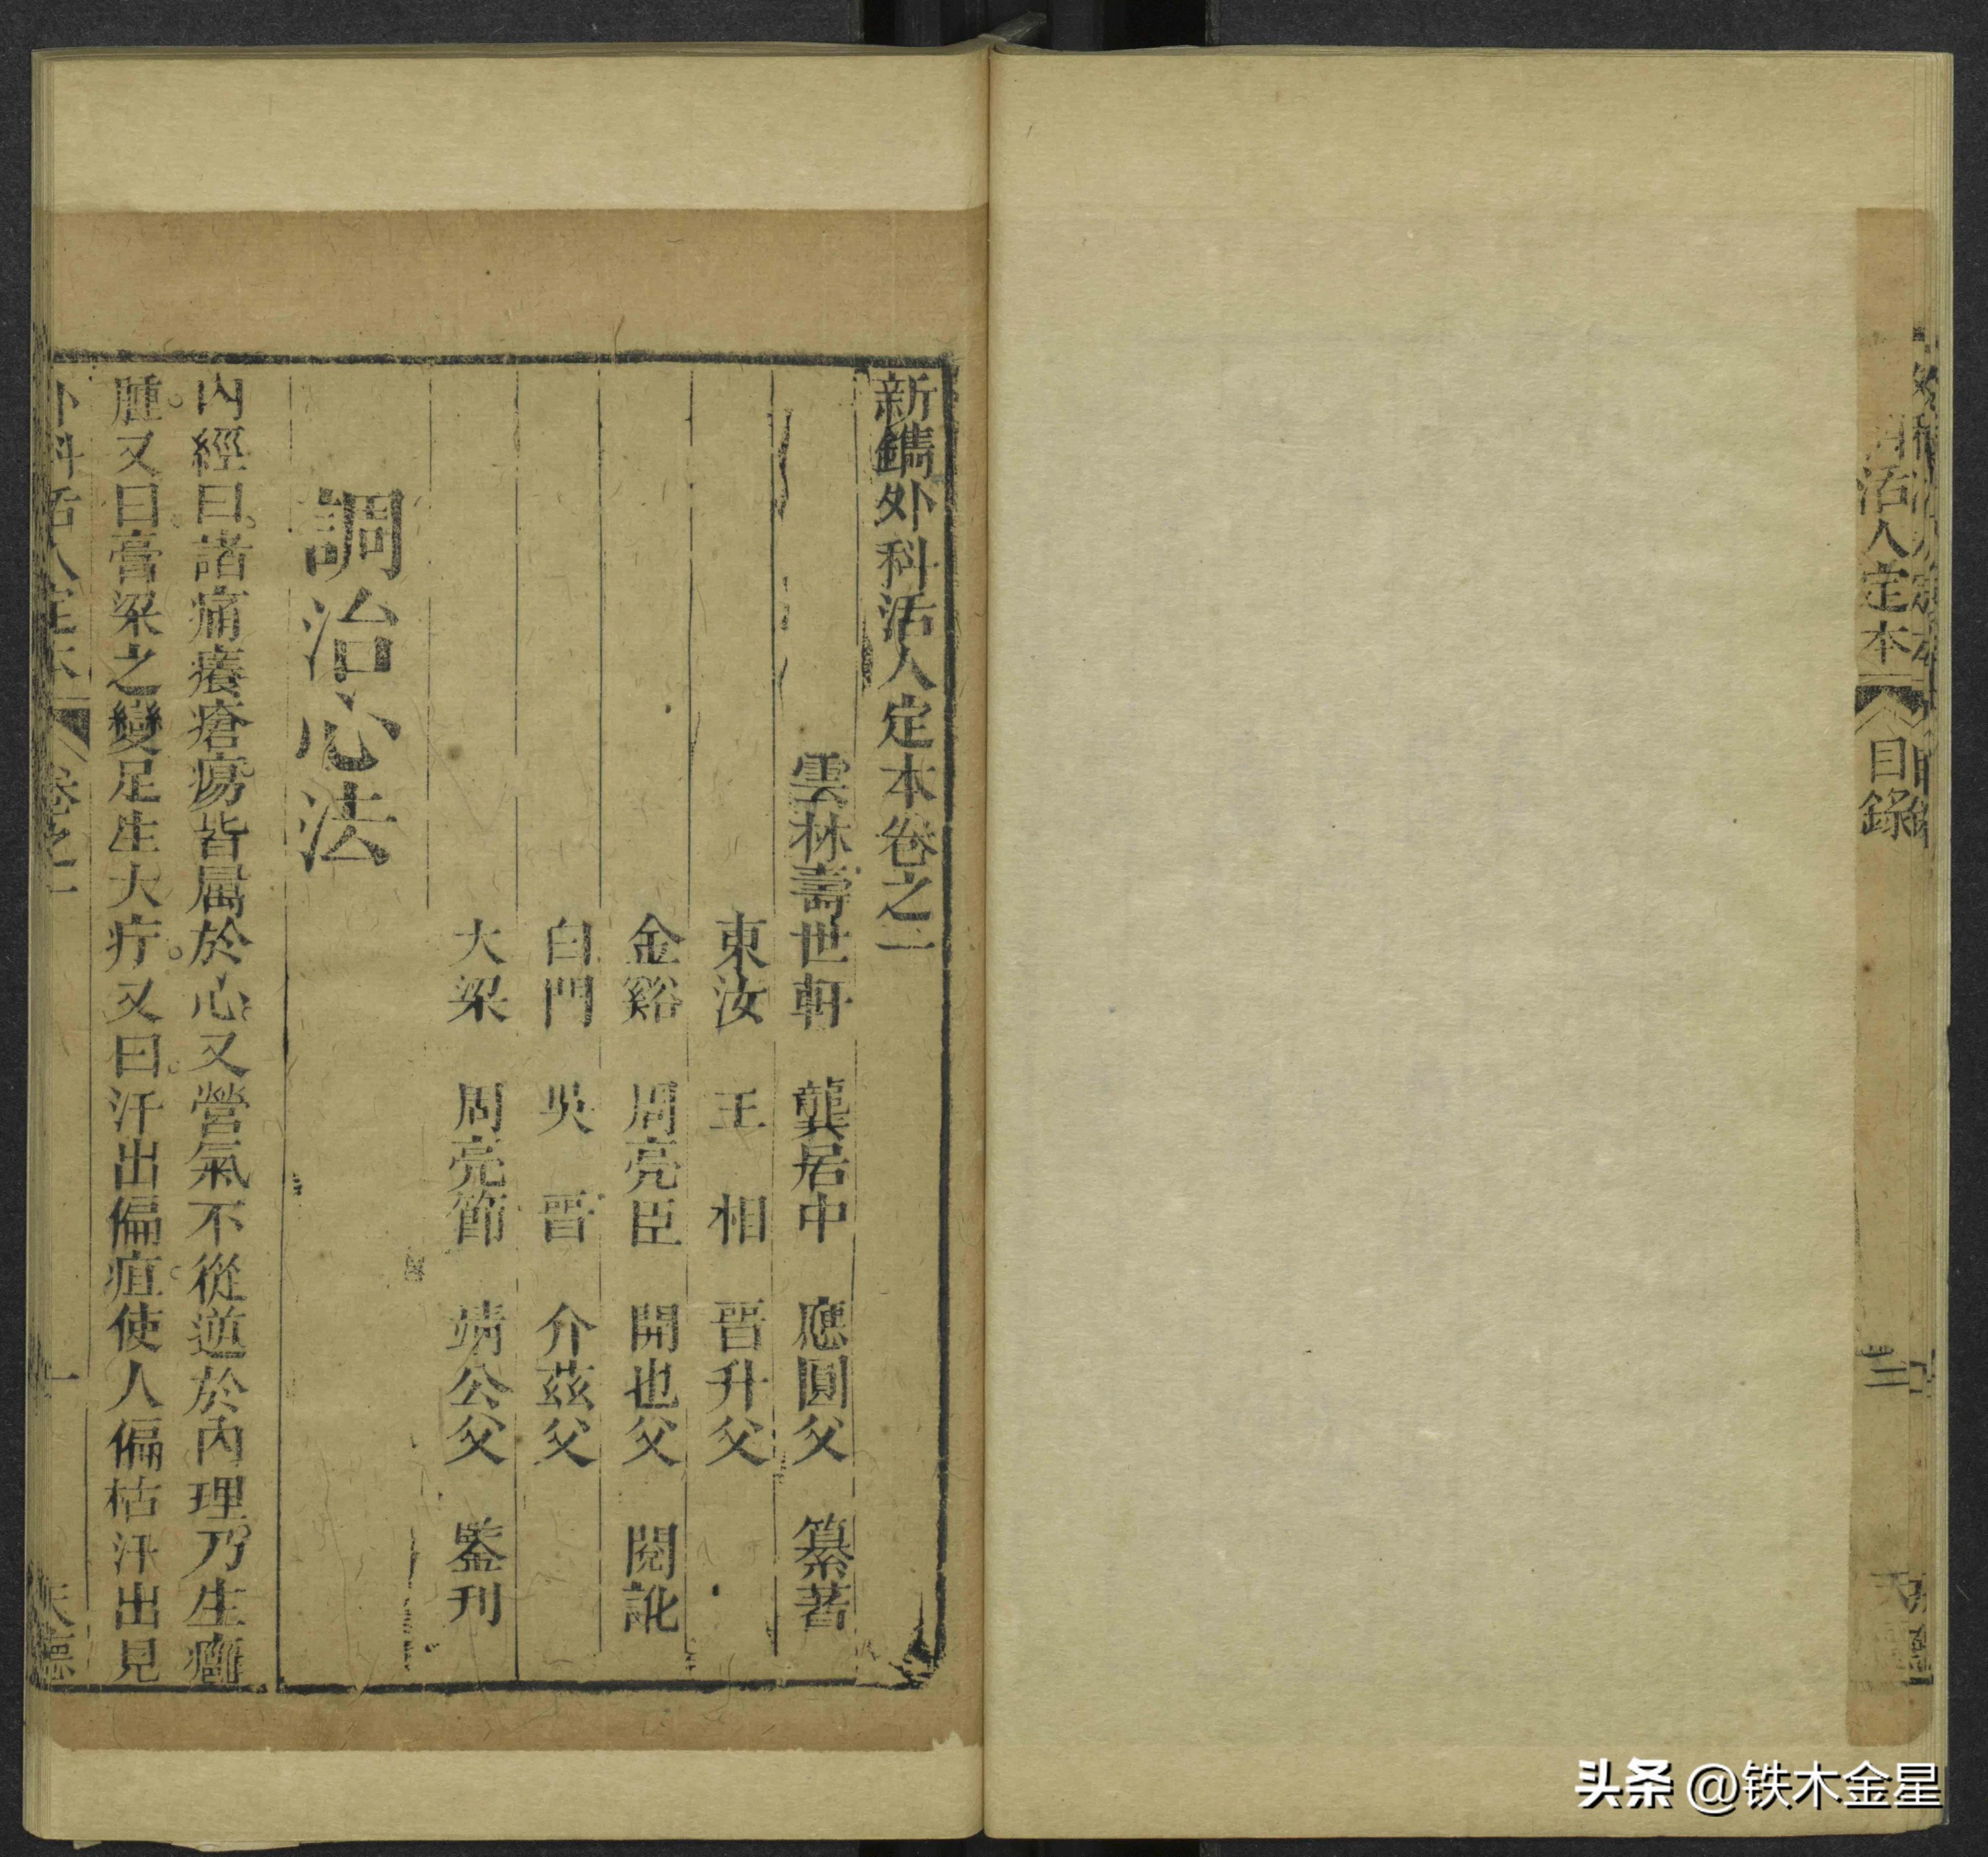 新鐫外科活人定本卷之一
雲林壽世軒 龔居中 應圓父 纂著
東汝 王相 晉升父
金谿 周亮臣 開也父 閱訛
白門 吳晉 介茲父
大梁 周亮節 靖公父 鍳刊
調治心法
內經曰。諸痛癢瘡瘍皆屬於心又營氣不從逆於內理乃生癰
腫。又曰。膏梁之變足生大疔。又曰。汗出偏疽。使人偏枯汗出見
外科活人定本 卷之一 一
活人定本 目錄 三
头条 @铁木金星